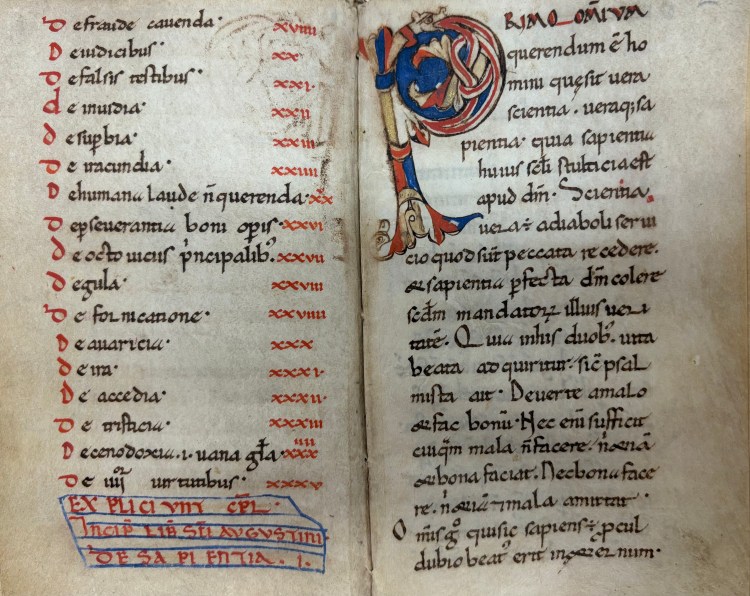 De fraude cauenda· xviiii
De iudicibus· xx
De falsis testibus· xxi·
de inuidia· xxii
de sup̄bia· xxiii
De iracundia· xxiiii
De humana laude n̄ querenda· xx
De p̄seuerantia boni op̄is· xxvi
de octo uiciis p̄ncipalib;· xxvii
de gula· xxviii
De fornicatione· xxviiii
De auaricia· xxx
De ira· xxxi·
De accedia· xxxii·
De tristicia· xxxiii
De cenodoxia·i· uana gl̄a· xxxiiii
De iiiior uirtutibus· xxxv
EXPLICIUNT CPL̄·
INCIP̄ LIB̄ SC̄I AUGUSTINI·
DE SAPIENTIA· I·
PRIMO OM̄IUM
querendum ē ho
mini quęsit uera
scientia· ueraq; sa
pientia· quia sapientia
huius sc̄li stulticia est
apud dm̄· Scientia
uera ē a diaboli serui
cio quod sūt peccata recedere·
& sapientia p̄fecta dm̄ colere
sc̄dm mandatorꝝ illius ueri
tatē· Quia in his duob; uita
beata adquiritur· sic̄ psal
mista ait· Deuerte a malo
& fac bonū· Nec enī sufficit
cuiq̄m mala n̄ facere· n̄
& bona faciat· Nec bona face
re· n̄ & mala amittat·
Om̄is gͦ quisic sapiens ē p̄cul
dubio beat; erit in &ernum·